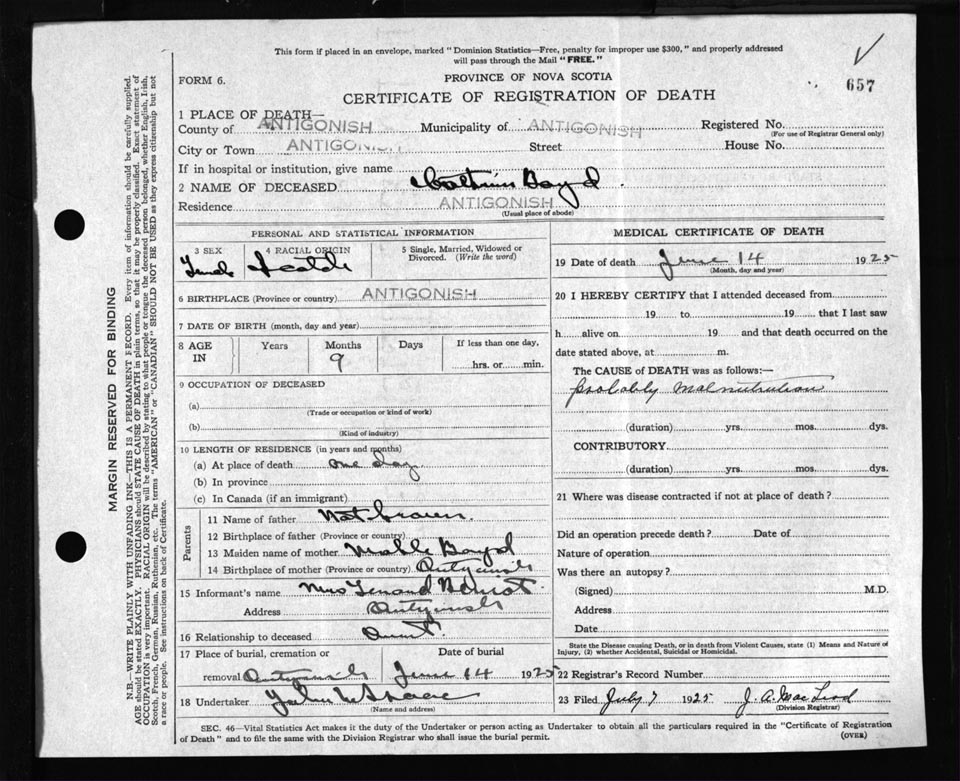 This form if placed in an envelope, marked "Dominion Statistics—Free, penalty for improper use $300," and properly addressed
will pass through the Mail "FREE."
FORM 6.
PROVINCE OF NOVA SCOTIA
657
CERTIFICATE OF REGISTRATION OF DEATH
1 PLACE OF DEATH—
County of ANTIGONISH Municipality of ANTIGONISH Registered No.
(For use of Registrar General only)
City or Town ANTIGONISH Street House No.
If in hospital or institution, give name
2 NAME OF DECEASED Boyd
Residence ANTIGONISH
(Usual place of abode)
PERSONAL AND STATISTICAL INFORMATION
3 SEX 4 RACIAL ORIGIN 5 Single, Married, Widowed or
Divorced. (Write the word)
Female Scotch
6 BIRTHPLACE (Province or country) ANTIGONISH
7 DATE OF BIRTH (month, day and year)
8 AGE Years Months Days If less than one day,
IN 9 hrs. or min.
9 OCCUPATION OF DECEASED
(a)
(Trade or occupation or kind of work)
(b)
(Kind of industry)
10 LENGTH OF RESIDENCE (in years and months)
(a) At place of death one day
(b) In province
(c) In Canada (if an immigrant)
Parents
11 Name of father Not known
12 Birthplace of father (Province or country)
13 Maiden name of mother Boyd
14 Birthplace of mother (Province or country) Antigonish
15 Informant's name Mrs
Address Antigonish
16 Relationship to deceased Aunt
17 Place of burial, cremation or Date of burial
removal Antigonish June 14 1925
18 Undertaker
(Name and address)
MEDICAL CERTIFICATE OF DEATH
19 Date of death June 14 1925
(Month, day and year)
20 I HEREBY CERTIFY that I attended deceased from
19 to 19 that I last saw
h alive on 19 and that death occurred on the
date stated above, at m.
The CAUSE of DEATH was as follows:—
probably malnutrition
(duration) yrs. mos. dys.
CONTRIBUTORY
(duration) yrs. mos. dys.
21 Where was disease contracted if not at place of death?
Did an operation precede death? Date of
Nature of operation
Was there an autopsy?
(Signed) M.D.
Address
Date
State the Disease causing Death, or in death from Violent Causes, state (1) Means and Nature of
Injury, (2) whether Accidental, Suicidal or Homicidal.
22 Registrar's Record Number
23 Filed July 7 1925 J. A. MacLeod
(Division Registrar)
SEC. 46—Vital Statistics Act makes it the duty of the Undertaker or person acting as Undertaker to obtain all the particulars required in the "Certificate of Registration
of Death" and to file the same with the Division Registrar who shall issue the burial permit. (OVER)
MARGIN RESERVED FOR BINDING
N.B.—WRITE PLAINLY WITH UNFADING INK—THIS IS A PERMANENT RECORD. Every item of information should be carefully supplied.
AGE should be stated EXACTLY. PHYSICIANS should STATE CAUSE OF DEATH in plain terms, so that it may be properly classified. Exact statement of
OCCUPATION is very important. RACIAL ORIGIN will be described by stating to what people or tongue the deceased person belonged, whether English, Irish,
Scotch, French, German, Russian, Ruthenian, etc. The terms "AMERICAN" or "CANADIAN" SHOULD NOT BE USED as they express citizenship but not
a race or people. See instructions on back of Certificate.